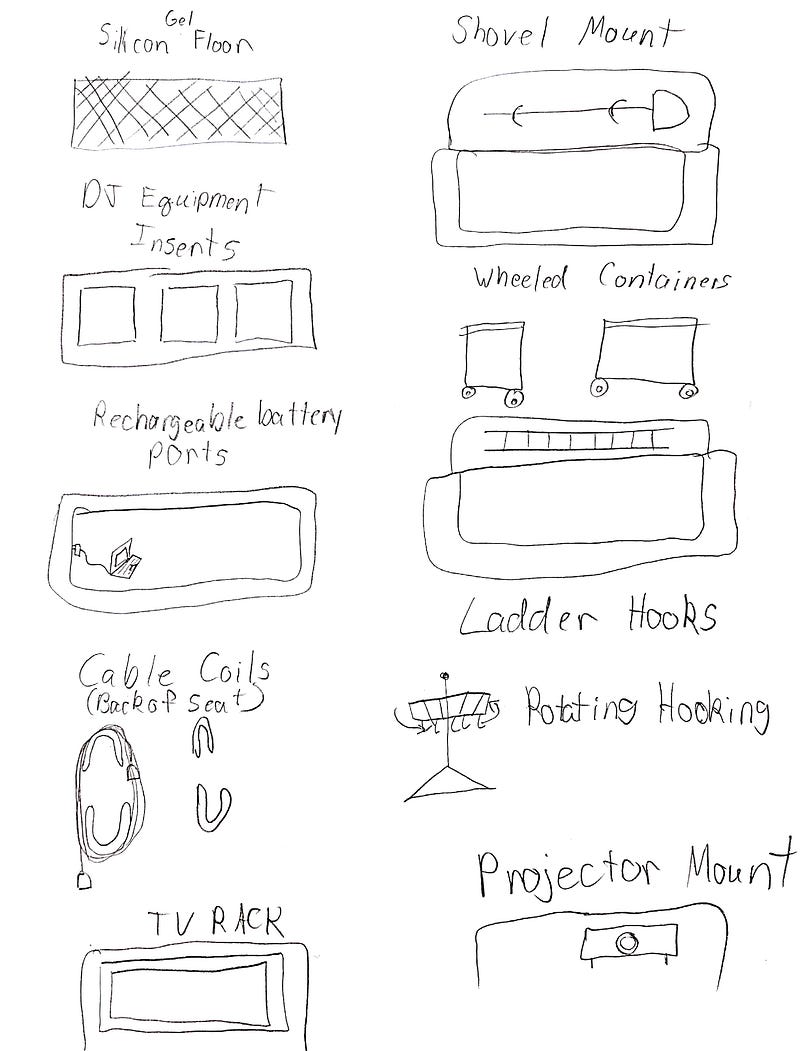 Gel
Silicon Floor
DJ Equipment
Inserts
Rechargeable battery
ports
Cable Coils
(Back of seat)
TV RACK
Shovel Mount
Wheeled Containers
Ladder Hooks
Rotating Hooking
Projector Mount